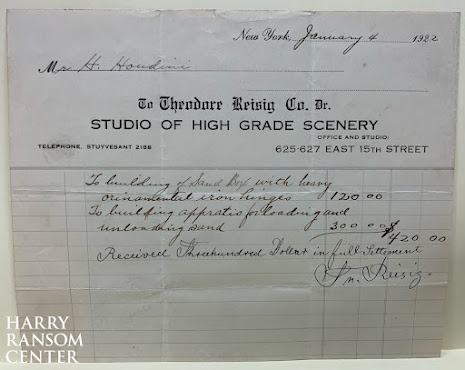 New York, January 4 1922
Mr H. Houdini
To Theodore Reisig Co. Dr.
STUDIO OF HIGH GRADE SCENERY
OFFICE AND STUDIO:
TELEPHONE, STUYVESANT 2188 625-627 EAST 15TH STREET
To building of Sand Box with heavy
ornamental iron hinges 120 00
To building appratis for loading and
unloading sand 300 00
$420 00
Received Threehundred Dollars in full Settlement
Reisig.
HARRY
RANSOM
CENTER